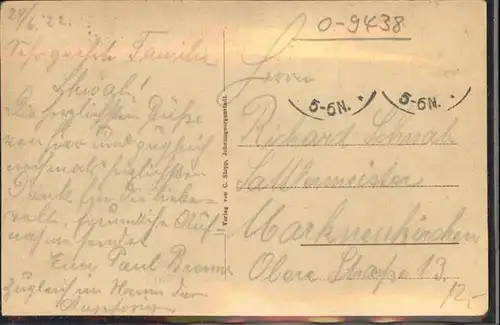 29/6. 22.
Sehr geehrte Familie
Schwab!
Die herzlichsten Grüße
von hier und zugleich
nochmals herzlichsten
Dank für die liebe-
voll, freundliche Auf-
nahme sendet
Euer Paul
zugleich im Namen der
Angehörigen
Verlag von C. Stopp, Johanngeorgenstadt.
0-9438
Herrn
5-6N. *
5-6N. *
Richard Schwab
Sattlermeister
Markneukirchen
Obere Straße 13.
12,-